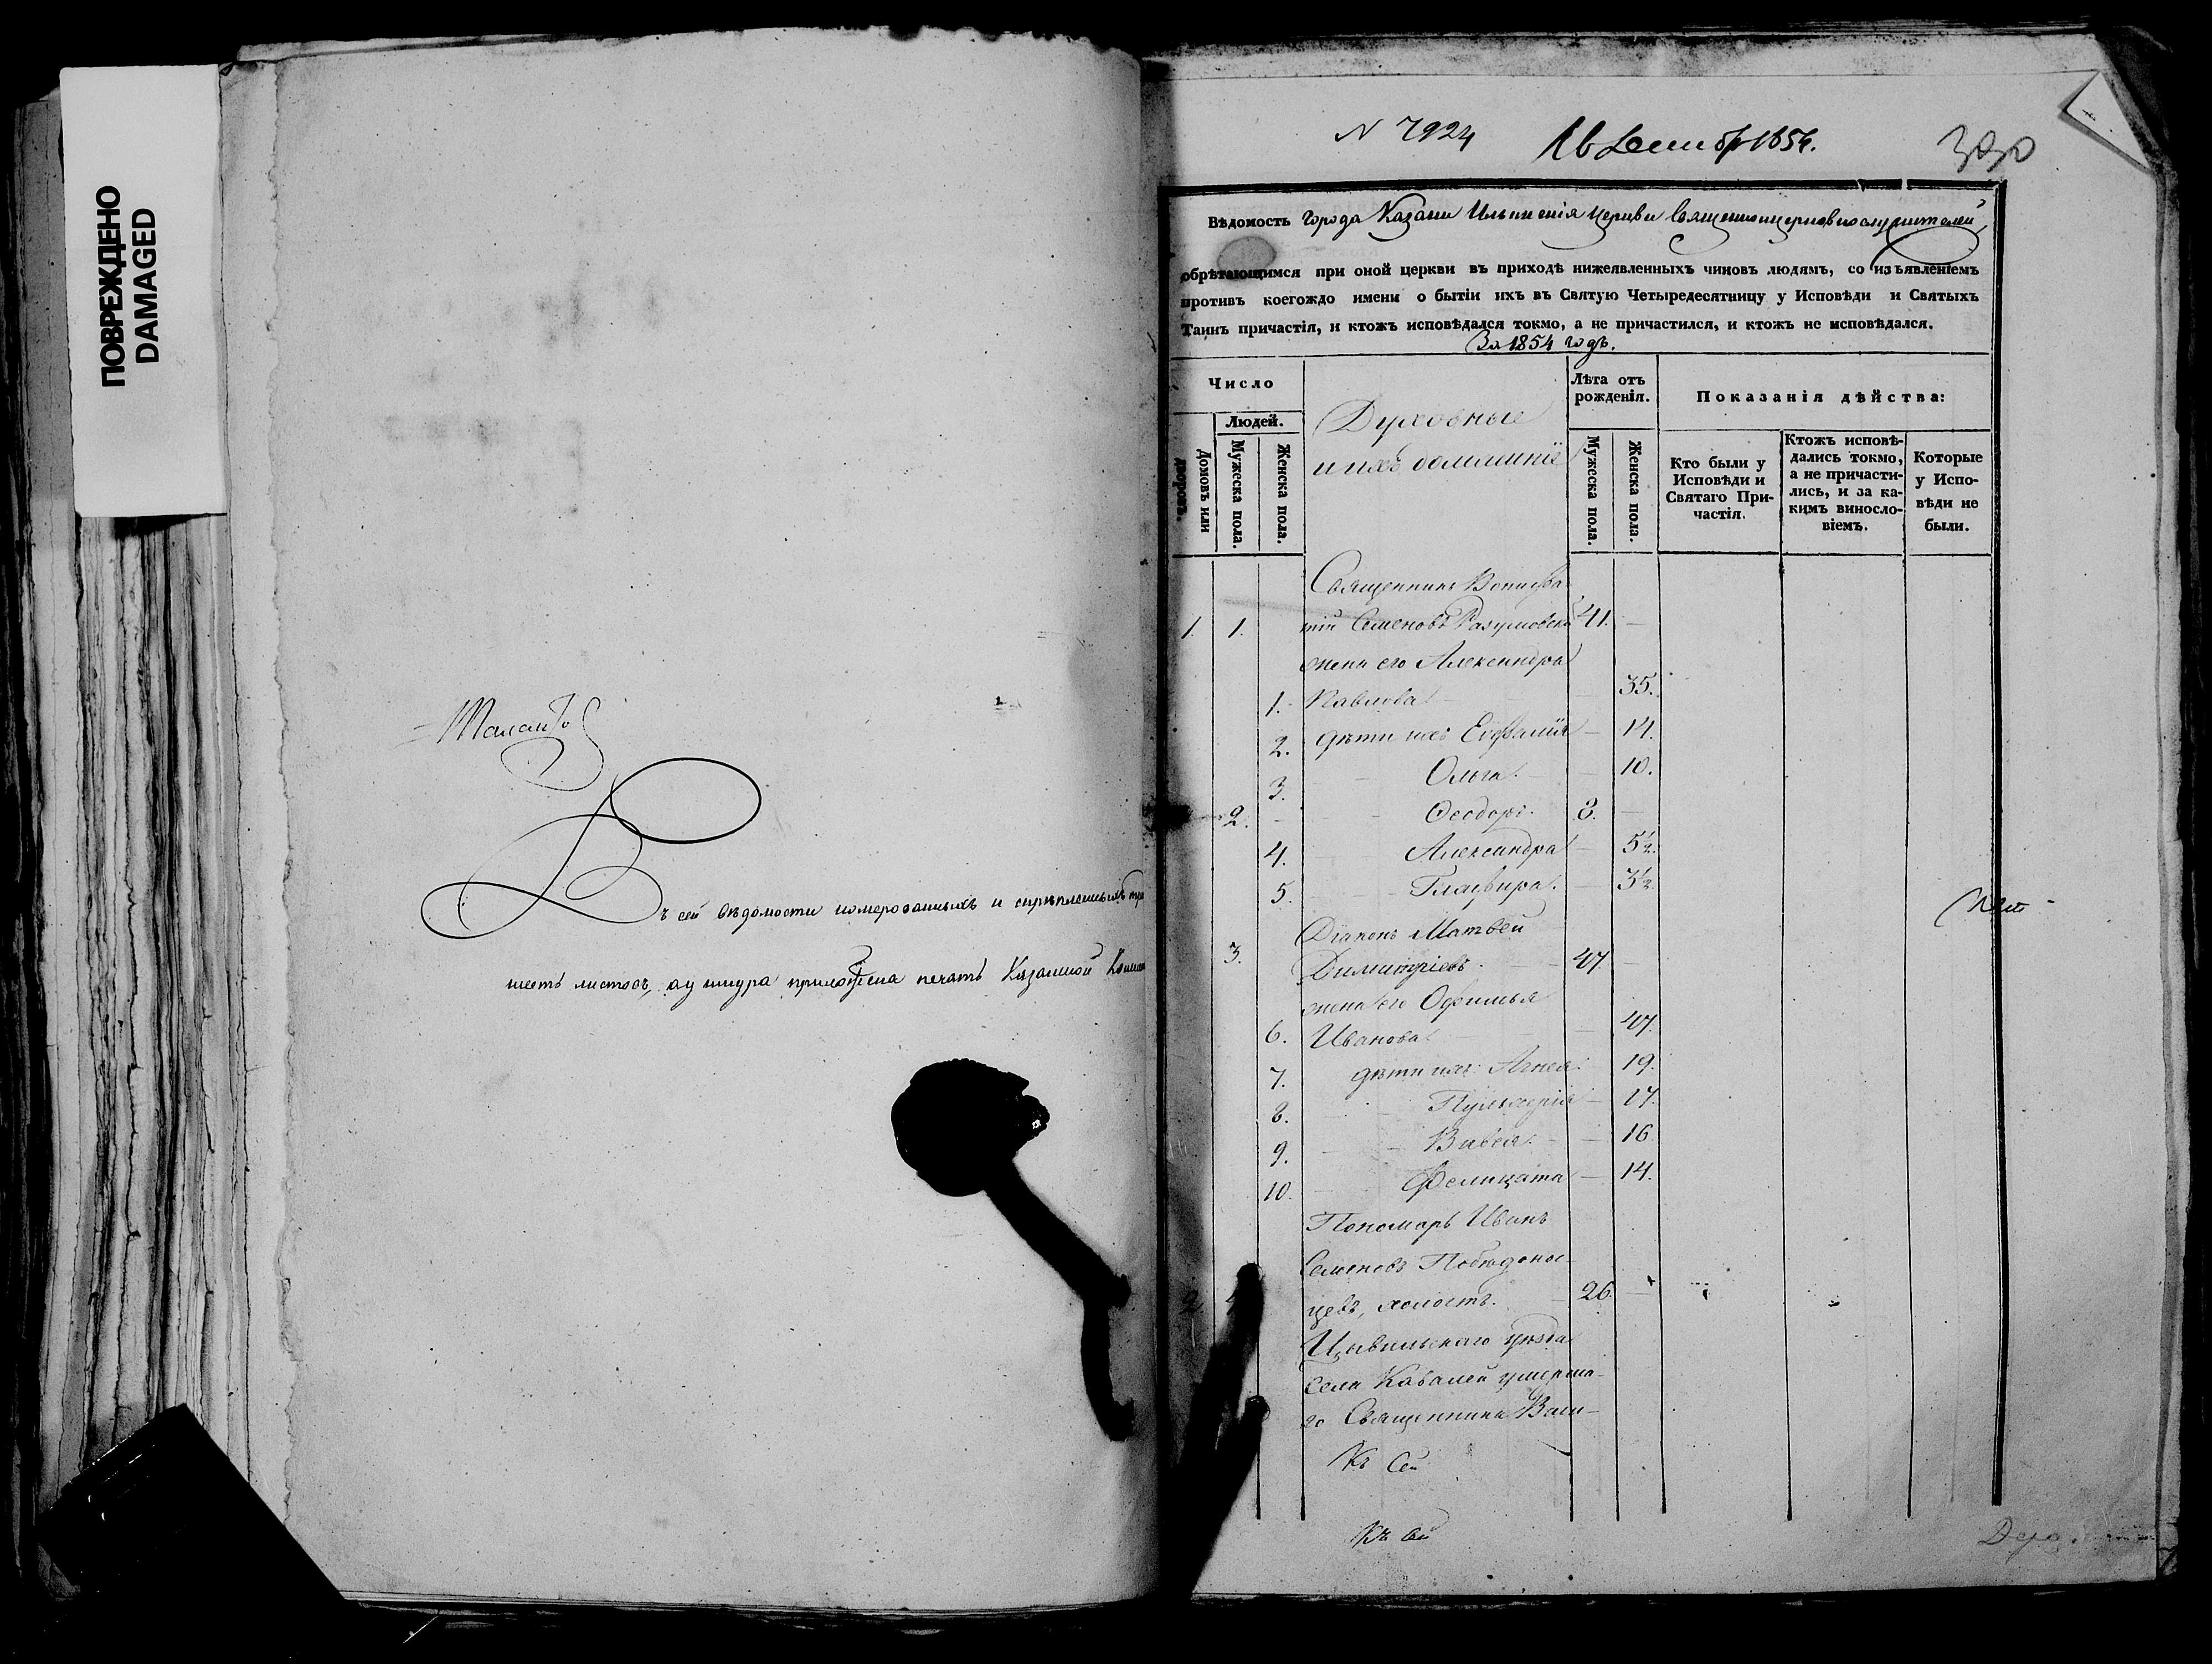 ПОВРЕЖДЕНО
DAMAGED
Въ сей вѣдомости номерованныхъ и скрѣпленныхъ
шесть листовъ, а у шнура приложена печать Казанской
N 7924
1854.
Вѣдомость города Казани Ильинскія церкви священноцерковнослужителей,
обрѣтающимся при оной церкви въ приходѣ нижеявленныхъ чиновъ людямъ, со изъявленіемъ
противъ коегождо имени о бытіи ихъ въ Святую Четыредесятницу у Исповѣди и Святыхъ
Таинъ причастія, и ктожъ исповѣдался токмо, а не причастился, и ктожъ не исповѣдался.
За 1854 годъ.
Число
Людей.
Домовъ или дворовъ.
Мужеска пола.
Женска пола.
Духовные
и ихъ домашніе
Лѣта отъ
рожденія.
Мужеска пола.
Женска пола.
Показанія дѣйства:
Кто были у
Исповѣди и
Святаго При-
частія.
Ктожъ исповѣ-
дались токмо,
а не причасти-
лись, и за ка-
кимъ винословіемъ.
Которые
у Испо-
вѣди не
были.
Священникъ Вонифа
1. 1. тій Семеновъ Разумовскій 41. —
жена его Александра
1. Павлова — 35.
2. дѣти ихъ Евфалія — 14.
3. Ольга. — 10.
2. - Ѳеодоръ. 8. —
4. Александра — 5½.
5. Глафира. — 3½.
Діаконъ Матвей
3. Димитріевъ. 47 —
жена его Офимья
6. Иванова — 47.
7. дѣти ихъ: Агнея. 19.
8. Пульхерія — 17.
9. Вивея. — 16
10. Фелицата — 14.
Пономарь Иванъ
Семеновъ Побѣдонос-
2. цевъ, холостъ. 26. —
Цывильскаго уѣзда
села Ковалей умерша-
го Священника Васи-
Къ сей
Къ сей